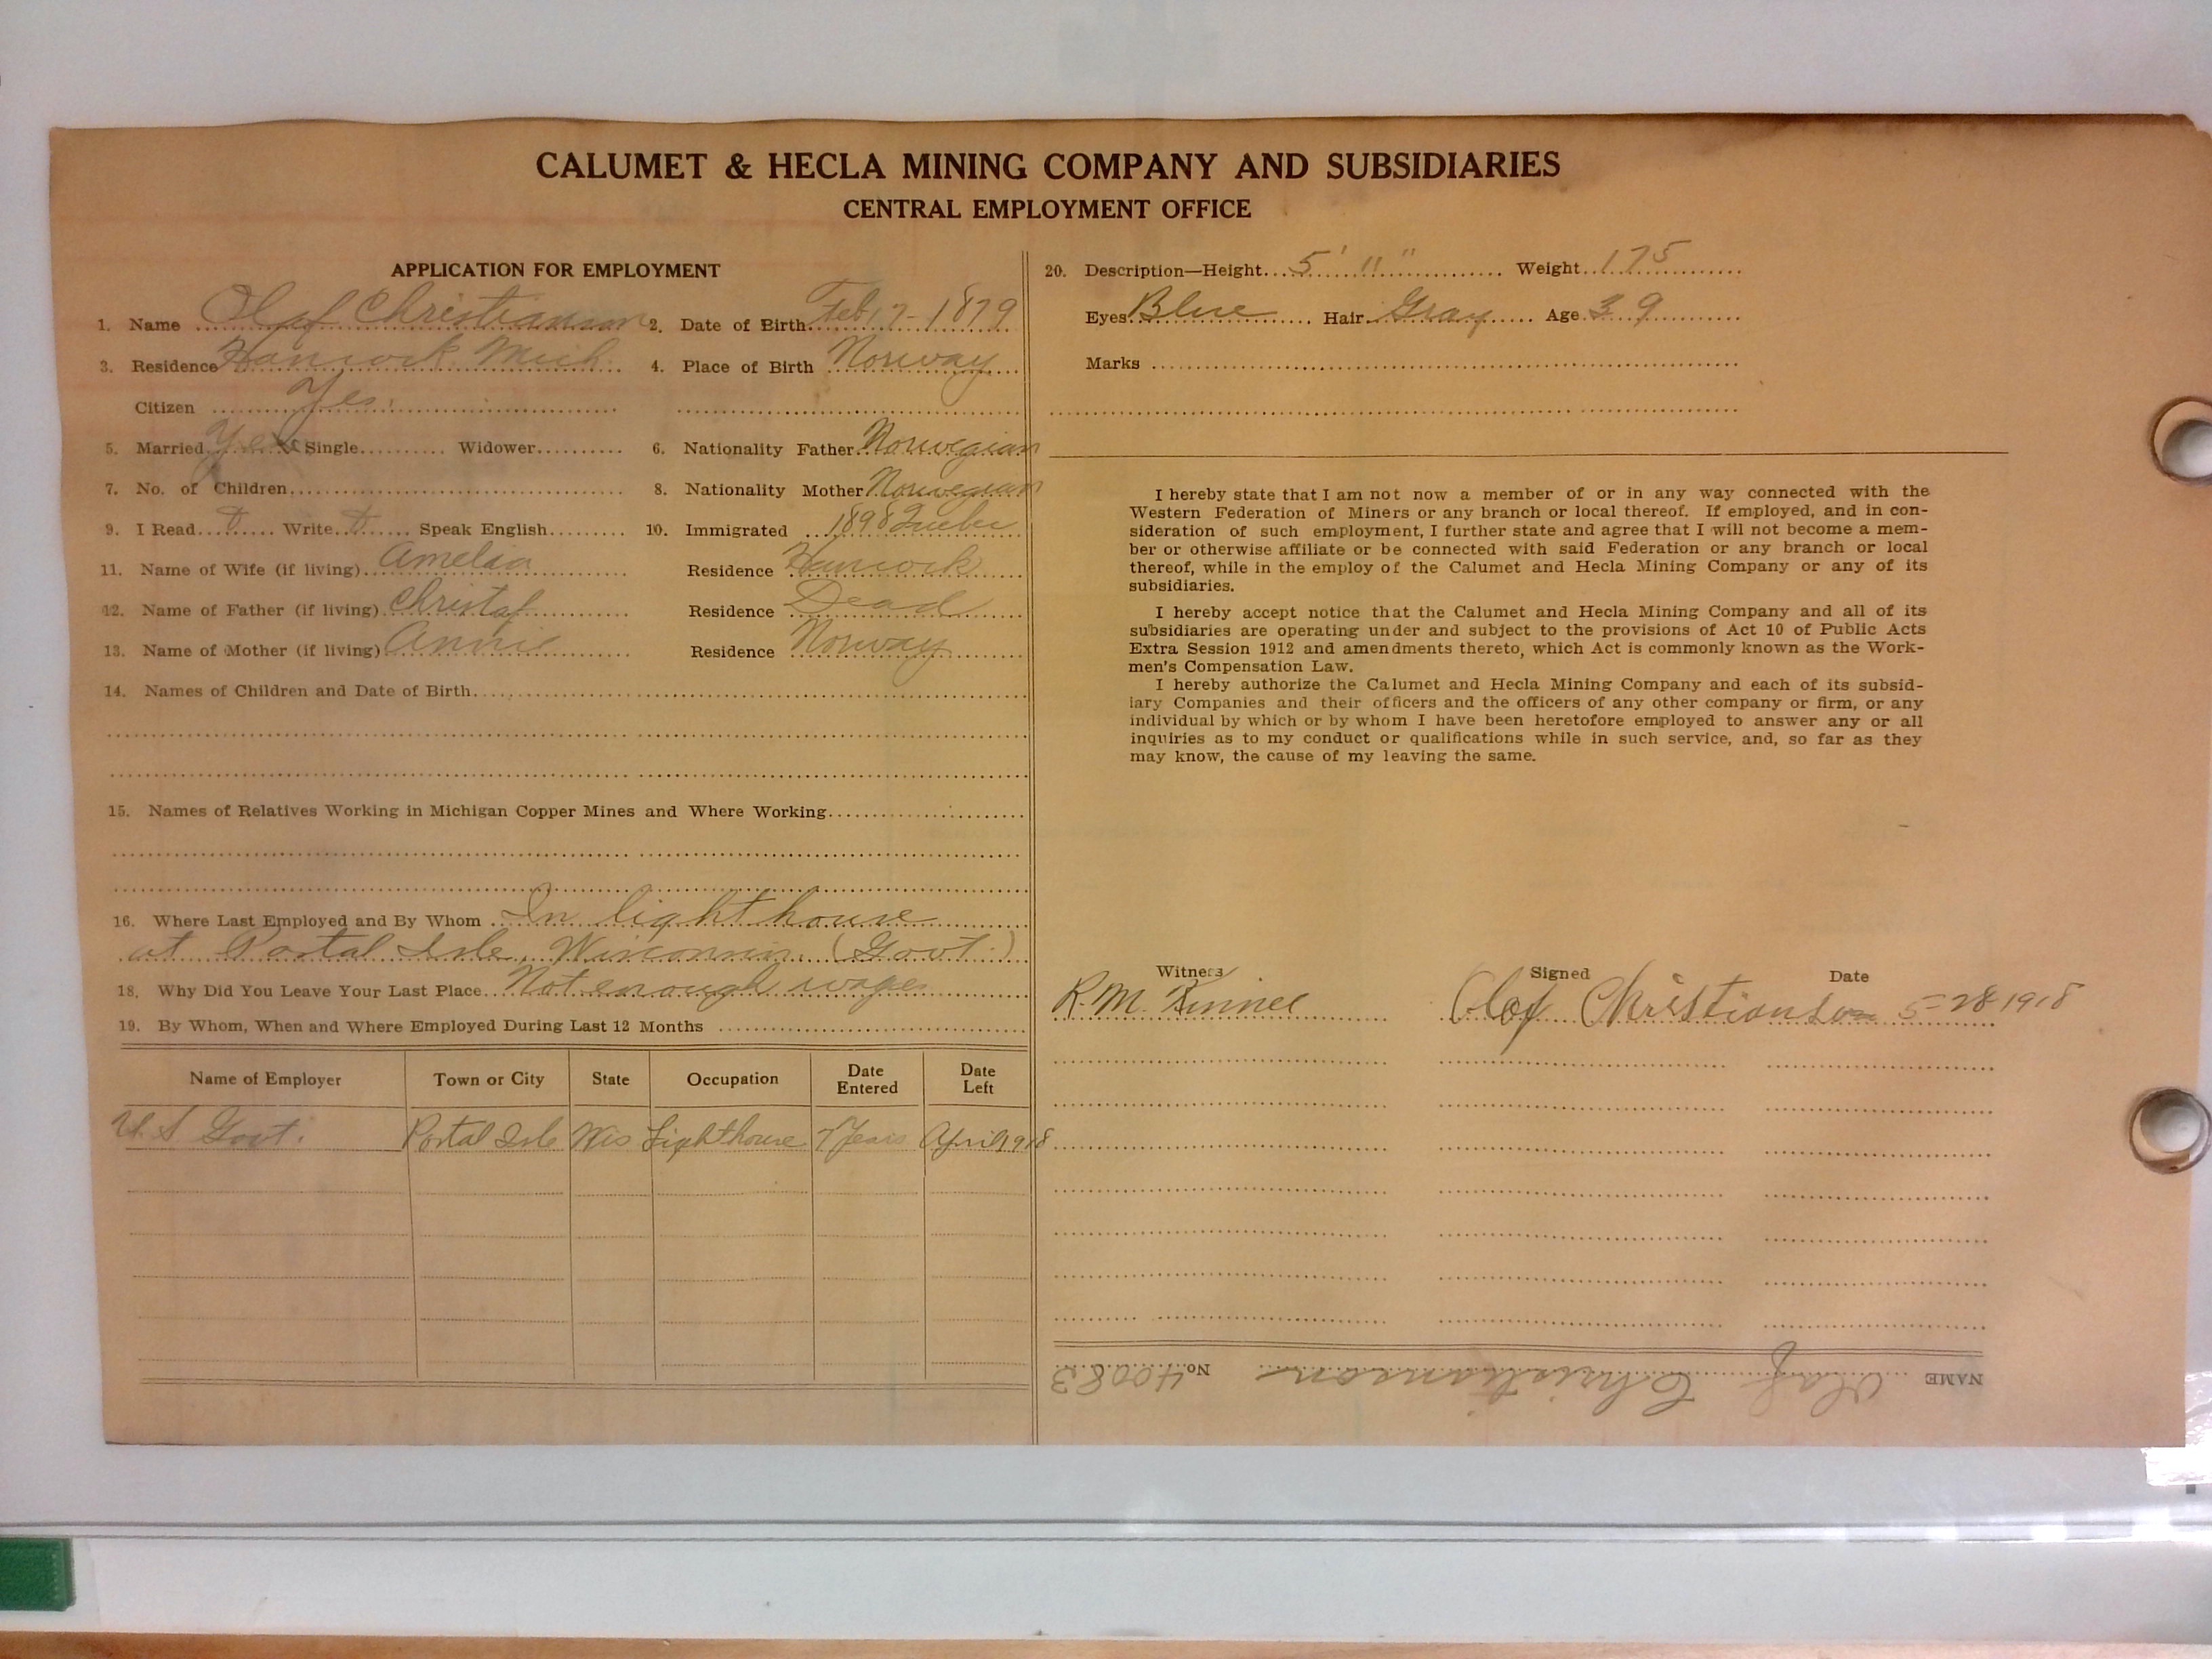 CALUMET & HECLA MINING COMPANY AND SUBSIDIARIES
CENTRAL EMPLOYMENT OFFICE
APPLICATION FOR EMPLOYMENT
1. Name Olaf Christianson 2. Date of Birth Feb 17-1879
3. Residence Hancock Mich. 4. Place of Birth Norway
Citizen Yes.
5. Married Yes Single Widower 6. Nationality Father Norwegian
7. No. of Children 8. Nationality Mother Norwegian
9. I Read Write Speak English 10. Immigrated 1898 Quebec
11. Name of Wife (if living) Amelia Residence Hancock
12. Name of Father (if living) Christaf Residence Dead
13. Name of Mother (if living) Annie Residence Norway
14. Names of Children and Date of Birth
15. Names of Relatives Working in Michigan Copper Mines and Where Working
16. Where Last Employed and By Whom In lighthouse
at Portal Isle, Wisconsin. (Govt.)
18. Why Did You Leave Your Last Place Not enough wages
19. By Whom, When and Where Employed During Last 12 Months
Name of Employer Town or City State Occupation Date Entered Date Left
U.S Govt. Portal Isle Wis Lighthouse 7 Years April 1918
20. Description—Height 5' 11" Weight 175
Eyes Blue Hair Gray Age 39
Marks
I hereby state that I am not now a member of or in any way connected with the
Western Federation of Miners or any branch or local thereof. If employed, and in con-
sideration of such employment, I further state and agree that I will not become a mem-
ber or otherwise affiliate or be connected with said Federation or any branch or local
thereof, while in the employ of the Calumet and Hecla Mining Company or any of its
subsidiaries.
I hereby accept notice that the Calumet and Hecla Mining Company and all of its
subsidiaries are operating under and subject to the provisions of Act 10 of Public Acts
Extra Session 1912 and amendments thereto, which Act is commonly known as the Work-
men's Compensation Law.
I hereby authorize the Calumet and Hecla Mining Company and each of its subsid-
iary Companies and their officers and the officers of any other company or firm, or any
individual by which or by whom I have been heretofore employed to answer any or all
inquiries as to my conduct or qualifications while in such service, and, so far as they
may know, the cause of my leaving the same.
Witness Signed Date
R.M. Kinnee Olaf Christianson 5-28 1918
NAME Olaf Christianson No. 40083